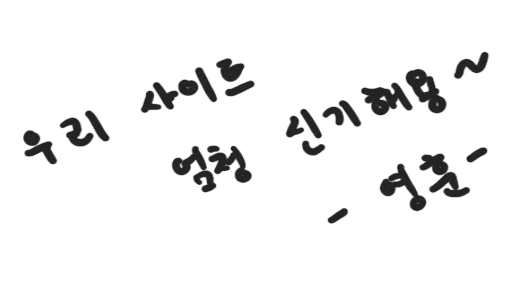 우리 사이트
엄청 신기해용~
- 영훈-